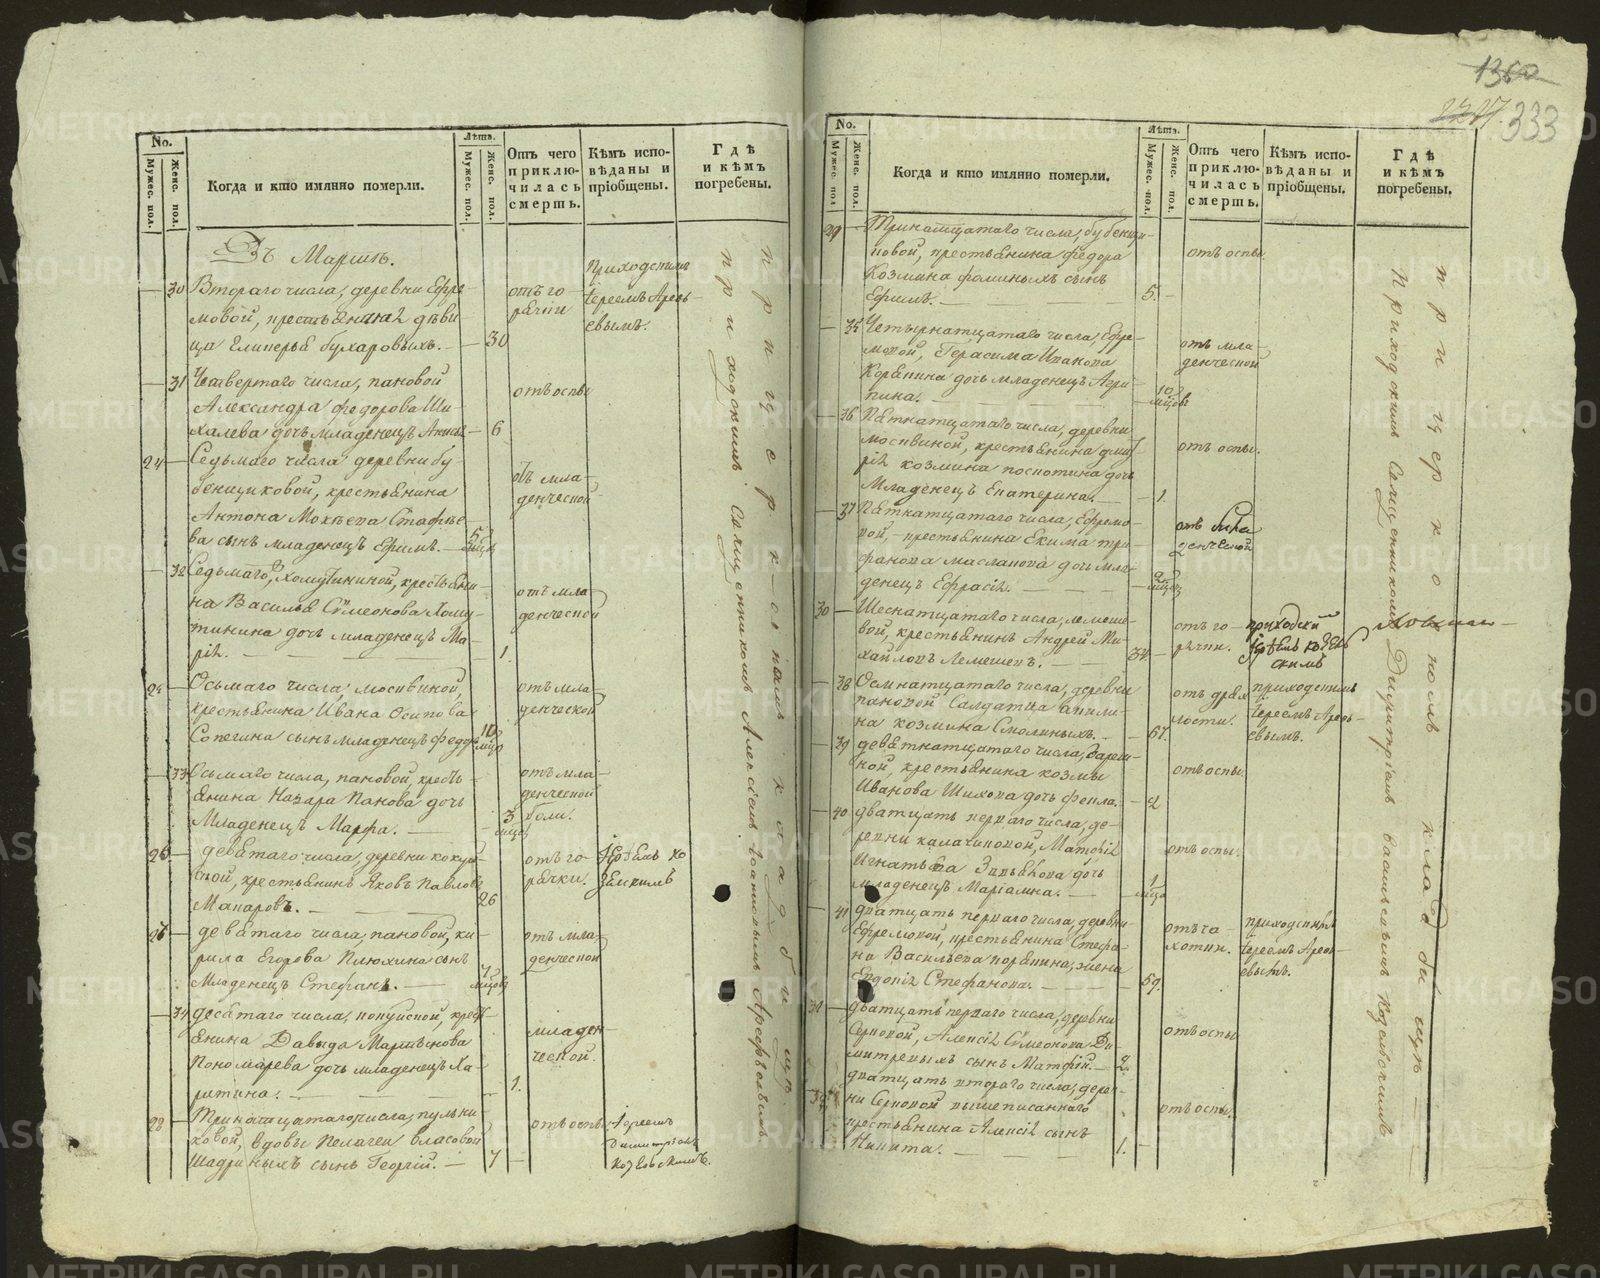 1360
1217 333
No.
Мужес. пол.
Женс. пол.
Когда и кто имянно померли.
Лѣтъ.
Мужес. пол.
Женс. пол.
Отъ чего приключилась смерть.
Кѣмъ исповѣданы и пріобщены.
Гдѣ и кѣмъ погребены.
Въ Мартѣ.
30 Втораго числа, деревни Ефре-
мовой, крестьянина дѣви-
ца Гликерья Бухаровыхъ. — 30
отъ го-
рячки
Приходскимъ
Іереемъ Арефь-
евымъ.
31 Четвертаго числа, пановой
Александра Федорова Ши-
халева дочь младенецъ — 6
отъ оспы
24 Седьмаго числа деревни бу-
бенщиковой, крестьянина
Антона Мокѣева Стафѣе-
ва сынъ младенецъ Ефимъ. — 5 мѣсяц
отъ мла-
денческой
32 Седьмаго, Холутининой, крестьяни-
на Василья Сѷмеонова Холу-
тинина дочь младенецъ Ма-
рія. — 1.
отъ мла-
денческой
25 Осьмаго числа, москвиной,
крестьянина Ивана Осипова
Сопегина сынъ младенецъ Федоръ 10 мѣсяц
отъ мла-
денческой
33 Осьмаго числа, пановой, кресть-
янина Назара Панова дочь
Младенецъ Марфа. — 3 мѣсяц
отъ мла-
денческой
боли.
26 девятаго числа, деревни кокуй-
ской, крестьянинъ Яковъ Павловъ
Макаровъ. — 26
отъ го-
рячки.
Іереемъ ко
зельскимъ
девятаго числа, пановой, ки-
рила Егорова Плюхина сынъ
Младенецъ Стефанъ. — 7 мѣсяцовъ
отъ мла-
денческой
34 десятаго числа, кокуйской, крест-
янина Давыда Мартынова
Пономарева дочь младенецъ Ха-
ритина. — 1.
младен-
ческой.
28 Тринатцатаго числа, пульни-
ковой, вдовы Пелагеи Власовой
Шадриныхъ сынъ Георгій. — 7
отъ оспы
Іереемъ
Димитріемъ
Козельскимъ.
при церковномъ кладбищѣ
приходскимъ Священникомъ Алексіемъ Іоанновымъ Арефьевымъ
No.
Мужес. пол
Женс. пол.
Когда и кто имянно померли.
Лѣтъ.
Мужес. пол.
Женс. пол.
Отъ чего приключилась смерть.
Кѣмъ исповѣданы и пріобщены.
Гдѣ и кѣмъ погребены.
29 Тринатцатаго числа, бубенщи-
ковой, крестьянина Федора
Козмина Фоминыхъ сынъ
Ефимъ. — 5.
отъ оспы
35 Четырнатцатаго числа, Ефре-
мовой, Герасима Иванова
Корянина дочь младенецъ Агри-
пина. — 10 мѣсяцовъ
отъ мла-
денческой
36 Пятнатцатаго числа, деревни
москвиной, крестьянина Дмит-
рія козмина поскотина дочь
Младенецъ Екатерина. — 1.
отъ оспы.
37 Пятнатцатаго числа, Ефремо-
вой, крестьянина Екима три-
фанова масланова дочь мла-
денецъ Ефрасія.
отъ мла
денческой
30 Шеснатцатаго числа, лемеше-
вой, крестьянинъ Андрей Ми-
хайловъ Лемешевъ. — 34.
отъ го-
рячки.
приходский
Іереемъ козель
скимъ
38 Осмнатцатаго числа, деревни
пановой Салдатца акили-
на козмина Смолиныхъ. — 67.
отъ дрях
лости.
приходскимъ
Іереемъ Арефь-
евымъ.
39 девятнатцатаго числа,
крестьянина козмы
Иванова Шихова дочь Фекла. — 2
отъ оспы
40 дватцать перваго числа, де-
ревни калачиковой, Матфія
Игнатьева дочь
младенецъ Маріамна. — 1 мѣсяц
отъ оспы.
41 дватцать перваго числа, деревни
Ефремовой, крестьянина Стефа-
на Васильева корянина, жена
Евдокія Стефанова. — 59.
отъ ча-
хотки.
приходскимъ
Іереемъ Арефь-
евымъ.
31 дватцать перваго числа, деревни
Серковой, Алексія Сѷмеонова Ди-
митревыхъ сынъ Матфій. — 2.
отъ оспы
32 дватцать втораго числа, дерев-
ни Серковой вышеписаннаго
крестьянина Алексія сынъ
Никита. — 1.
отъ оспы.
при церковномъ кладбищѣ
Приходскимъ Священникомъ Димитріемъ Васильевымъ Козельскимъ